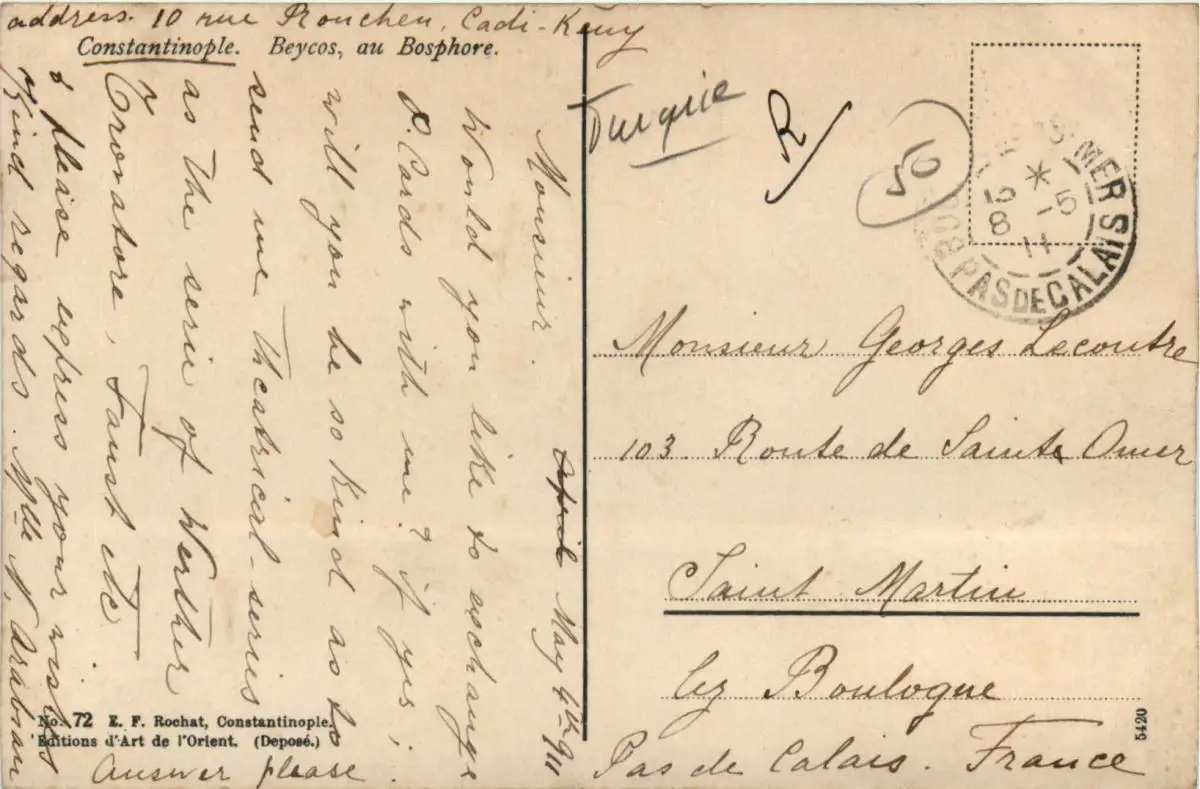 address. 10 rue Pronchen, Cadi-Keuy
Constantinople. Beycos, au Bosphore.
Turquie
50
MER
PAS DE CALAIS
8 -5
11
April May 4th 911
Monsieur.
Would you like to exchange
P. Cards with me? if yes;
will you be so kind as to
send me theatrical-series
as the serie of Werther
Trovatore, Faust etc
& please express your wishes
Kind regards. Mlle N. Arabian
Answer please.
Monsieur Georges Lecoutre
103 Route de Sainte Omer
Saint Martin
lez Boulogne
Pas de Calais. France
No. 72 E. F. Rochat, Constantinople.
Editions d'Art de l'Orient. (Deposé.)
5420